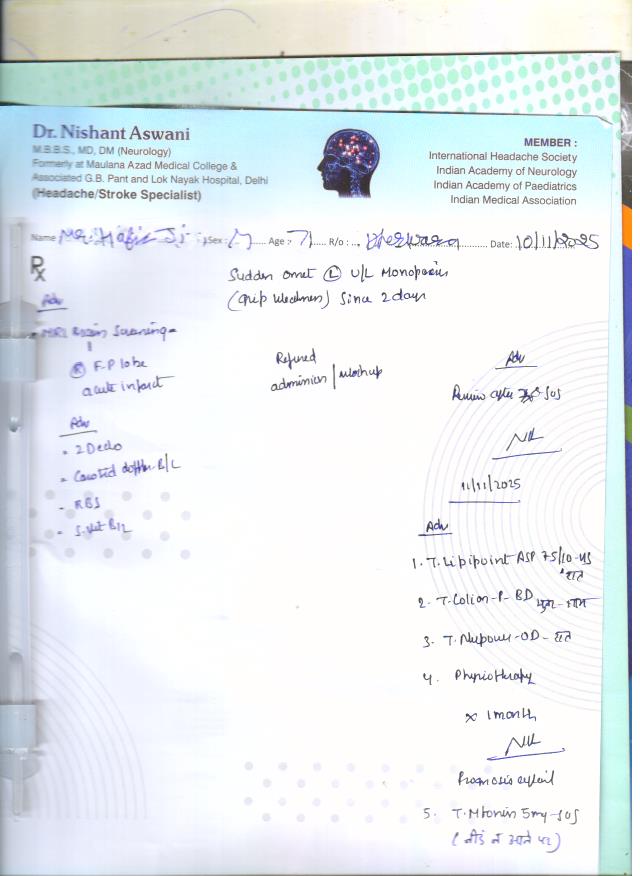 Dr. Nishant Aswani
M.B.B.S., MD, DM (Neurology)
Formerly at Maulana Azad Medical College &
Associated G.B. Pant and Lok Nayak Hospital, Delhi
(Headache/Stroke Specialist)
MEMBER :
International Headache Society
Indian Academy of Neurology
Indian Academy of Paediatrics
Indian Medical Association
Name Mr. Hafiz Ji Sex : M Age : 71 R/o : Date: 10/11/2025
Rx
Sudden onset (L) U/L Monoparesis
(Grip Weakness) Since 2 days
Adv
- MRI Brain Screening -
(R) F-P lobe
acute infarct
Refused
admission / workup
Adv
Review after SOS
Adv
- 2D echo
- Carotid doppler B/L
- RBS
- S. Vit B12
11/11/2025
Adv
1. T. Lipipoint ASP 75/10 - HS
रात
2. T. Colion-P - BD सुबह - शाम
3. T. - OD - रात
4. Physiotherapy
x 1 month
Prognosis explained
5. T. Mtonin 5mg - SOS
(नींद न आने पर)